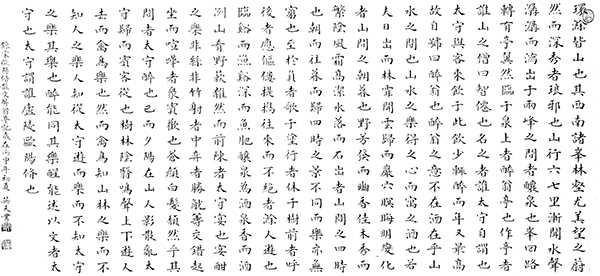 環滁皆山也其西南諸峯林壑尤美望之蔚
然而深秀者琅琊也山行六七里漸聞水聲
潺潺而瀉出于兩峰之間者釀泉也峯回路
轉有亭翼然臨于泉上者醉翁亭也作亭者
誰山之僧曰智僊也名之者誰太守自謂也
太守與客來飲于此飲少輒醉而年又最高
故自號曰醉翁也醉翁之意不在酒在乎山
水之間也山水之樂得之心而寓之酒也若
夫日出而林霏開雲歸而巖穴暝晦明變化
者山間之朝暮也野芳發而幽香佳木秀而
繁陰風霜高潔水落而石出者山間之四時
也朝而往暮而歸四時之景不同而樂亦無
窮也至於負者歌于塗行者休于樹前者呼
後者應傴僂提攜往來而不絕者滁人遊也
臨谿而漁谿深而魚肥釀泉為酒泉香而酒
洌山肴野蔌雜然而前陳者太守宴也宴酣
之樂非絲非竹射者中弈者勝觥籌交錯起
坐而喧嘩者衆賓歡也蒼顏白髮頹然乎其
間者太守醉也已而夕陽在山人影散亂太
守歸而賓客從也樹林陰翳鳴聲上下遊人
去而禽鳥樂也然而禽鳥知山林之樂而不
知人之樂人知從太守遊而樂而不知太守
之樂其樂也醉能同其樂醒能述以文者太
守也太守謂誰廬陵歐陽脩也
錄宋歐陽修散文醉翁亭記歲在丙申年初夏